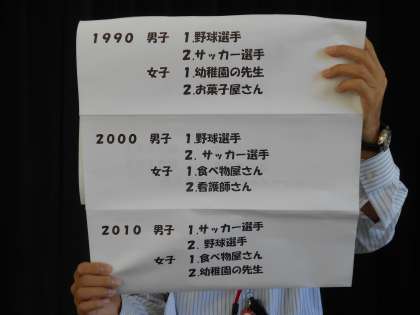 1990 男子 1.野球選手
2.サッカー選手
女子 1.幼稚園の先生
2.お菓子屋さん
2000 男子 1.野球選手
2. サッカー選手
女子 1.食べ物屋さん
2.看護師さん
2010 男子 1.サッカー選手
2. 野球選手
女子 1.食べ物屋さん
2.幼稚園の先生